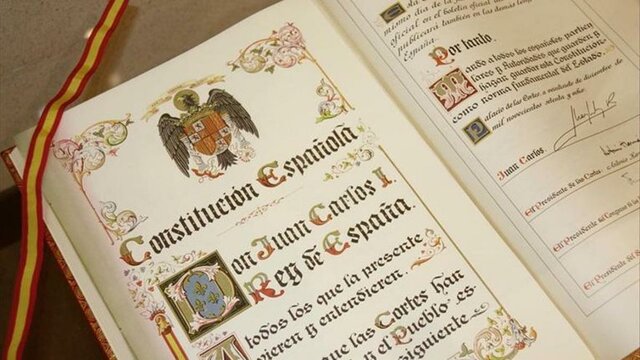 Constitución Española
Don Juan Carlos I.
Rey de España.
A todos los que la presente
vieren y entendieren.
que las Cortes han
y el Pueblo es
siguiente
mismo día de la
oficial en el boletín oficial
publicará también en las demás
España.
Por tanto.
Mando a todos los españoles, particu
lares y Autoridades que guarden y
hagan guardar esta Constitución
como norma fundamental del Estado.
Palacio de las Cortes, a veintiocho de diciembre de
mil novecientos setenta y ocho.
Juan Carlos
El Presidente de las Cortes
El Presidente del Congreso de los
El Presidente del
El Presidente